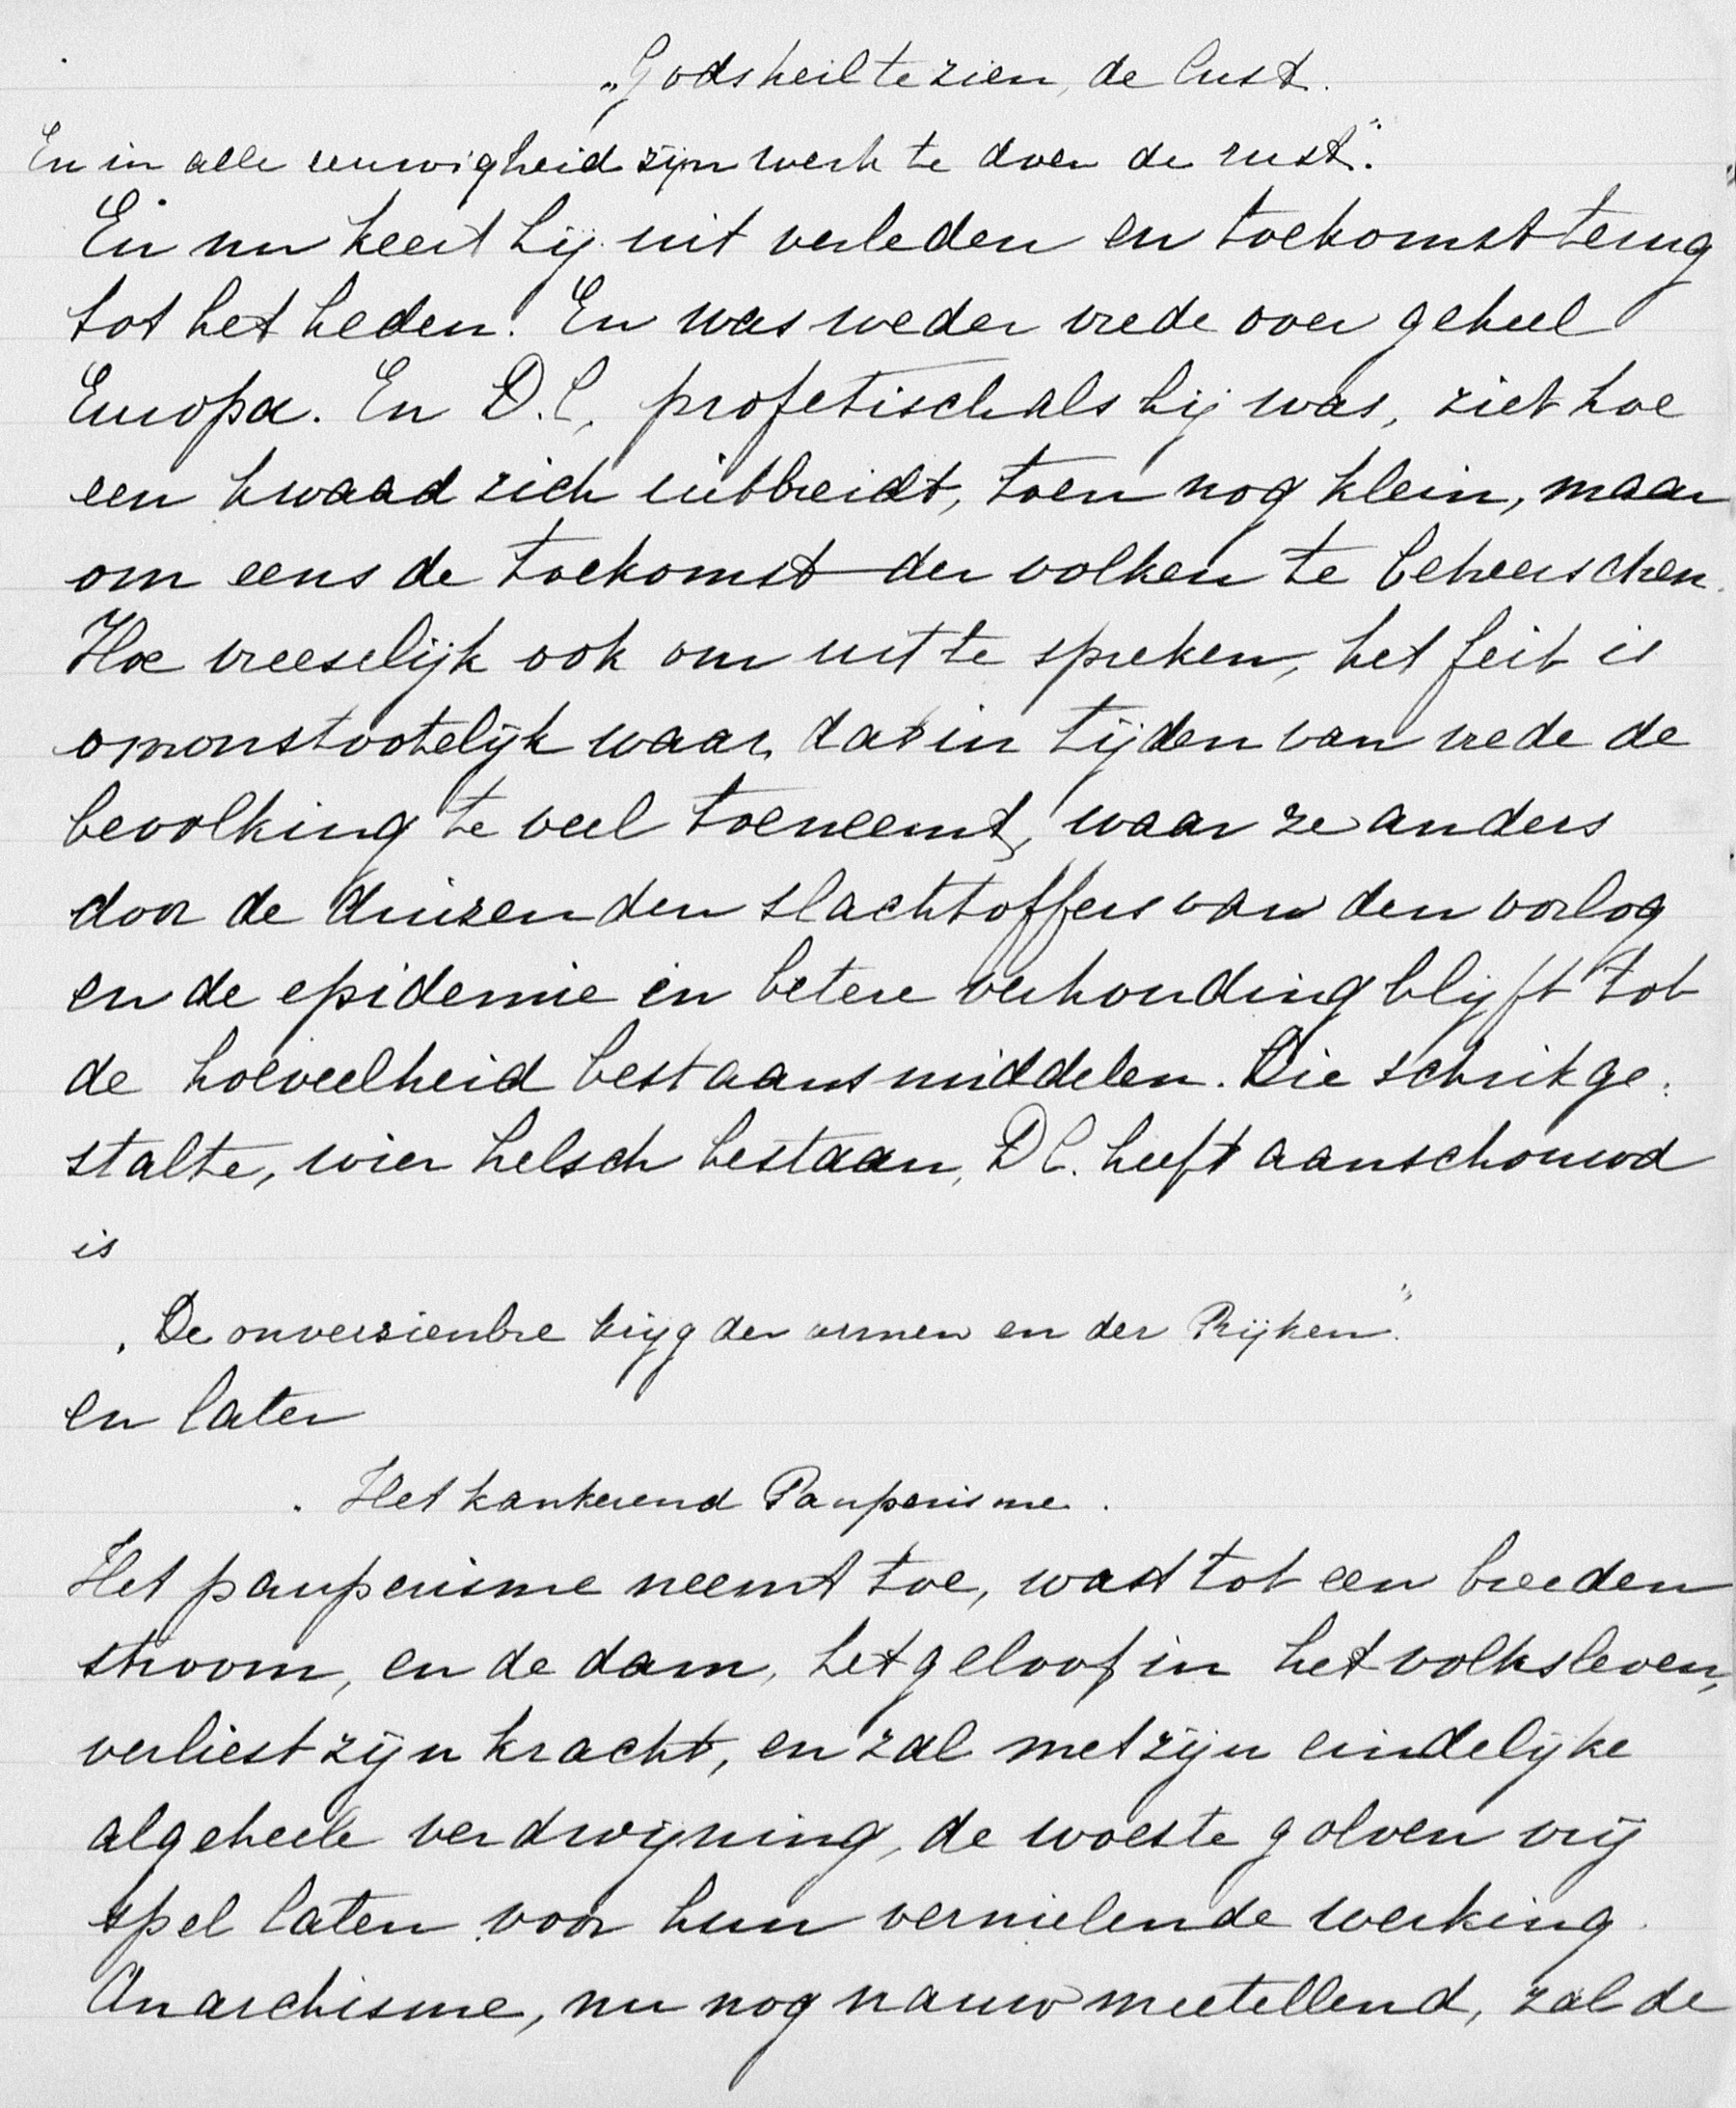 „Gods heil te zien, de lust.
En in alle eeuwigheid zijn werk te doen de rust".
En nu keert hij uit verleden en toekomst terug
tot het heden. En was weder vrede over geheel
Europa. En D.C, profetisch als hij was, ziet hoe
een kwaad zich uitbreidt, toen nog klein, maar
om eens de toekomst der volken te beheerschen.
Hoe vreeselijk ook om uit te spreken, het feit is
onomstootelijk waar, dat in tijden van vrede de
bevolking te veel toeneemt, waar ze anders
door de duizenden slachtoffers van den oorlog
en de epidemie in betere verhouding blijft tot
de hoeveelheid bestaansmiddelen. Die schrikge-
stalte, wier helsch bestaan, D C. heeft aanschouwd
is
„De onverzienbre krijg der armen en der Rijken."
en later
„Het kankerend Pauperisme".
Het pauperisme neemt toe, wast tot een breeden
stroom, en de dam, het geloof in het volksleven,
verliest zijn kracht, en zal met zijn eindelijke
algeheele verdwijning, de woeste golven vrij
spel laten voor hun vernielende werking.
Anarchisme, nu nog nauw meetellend, zal de